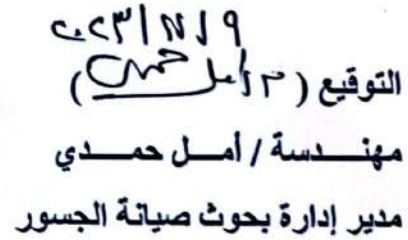 التوقيع (م / أمل حمدى)
مهندسة / أمل حمدي
مدير إدارة بحوث صيانة الجسور